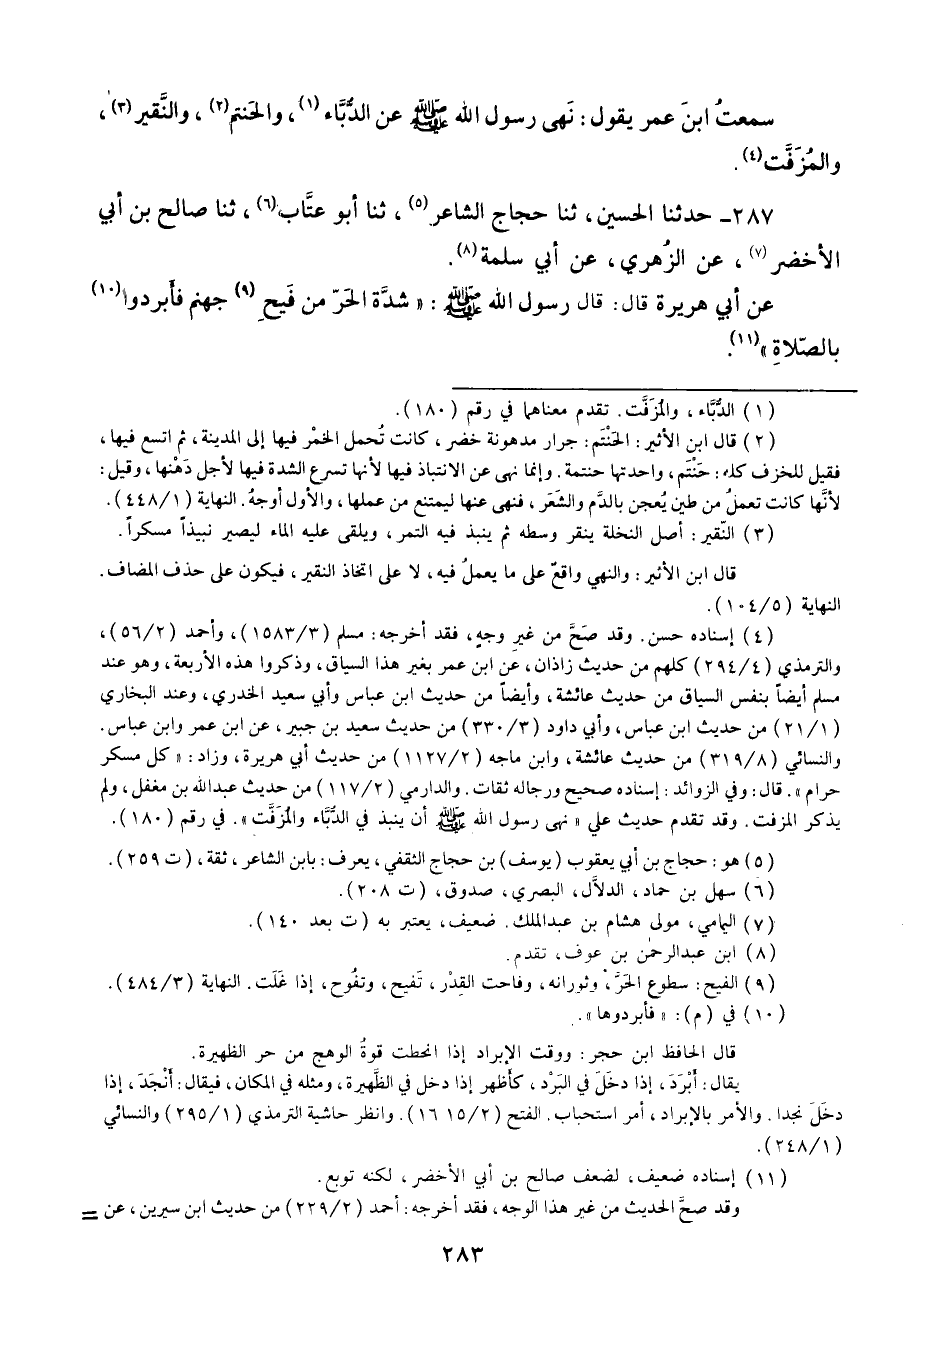 سمعتُ ابنَ عمر يقول : نَهى رسول الله ﷺ عن الدُّبَّاء (١) ، والحَنتم (٢) ، والنَّقير (٣) ،
والمُزَفَّت (٤) .
٢٨٧ ـ حدثنا الحسين ، ثنا حجاج الشاعر (٥) ، ثنا أبو عتَّاب (٦) ، ثنا صالح بن أبي
الأخضر (٧) ، عن الزُهري ، عن أبي سلمة (٨) .
عن أبي هريرة قال : قال رسول الله ﷺ : « شدَّة الحَرّ من فَيح (٩) جهنم فأَبردوا (١٠)
بالصّلاةِ » (١١) .
(١) الدُّبَّاء ، والمُزَفَّت . تقدم معناهما في رقم (١٨٠) .
(٢) قال ابن الأثير : الحَنْتَم : جرار مدهونة خضر ، كانت تُحمل الخمْر فيها إلى المدينة ، ثم اتسع فيها ،
فقيل للخزف كله : حَنْتَم ، واحدتها حنتمة . وإنما نهى عن الانتباذ فيها لأنها تسرع الشدة فيها لأجل دَهْنها ، وقيل :
لأنَّها كانت تعملُ من طين يُعجن بالدَّم والشَّعَر ، فنهى عنها ليمتنع من عملها ، والأول أوجهُ . النهاية (٤٤٨/١) .
(٣) النّقير : أصل النخلة ينقر وسطه ثم ينبذ فيه التمر ، ويلقى عليه الماء ليصير نبيذاً مسكراً .
قال ابن الأثير : والنهي واقعٌ على ما يعملُ فيه ، لا على اتخاذ النقير ، فيكون على حذف المضاف .
النهاية (١٠٤/٥) .
(٤) إسناده حسن . وقد صَحَّ من غير وجهٍ ، فقد أخرجه : مسلم (١٥٨٣/٣) ، وأحمد (٥٦/٢) ،
والترمذي (٢٩٤/٤) كلهم من حديث زاذان ، عن ابن عمر بغير هذا السياق ، وذكروا هذه الأربعة ، وهو عند
مسلم أيضاً بنفس السياق من حديث عائشة ، وأيضاً من حديث ابن عباس وأبي سعيد الخدري ، وعند البخاري
(٢١/١) من حديث ابن عباس ، وأبي داود (٣٣٠/٣) من حديث سعيد بن جبير ، عن ابن عمر وابن عباس .
والنسائي (٣١٩/٨) من حديث عائشة ، وابن ماجه (١١٢٧/٢) من حديث أبي هريرة ، وزاد : « كل مسكر
حرام » . قال : وفي الزوائد : إسناده صحيح ورجاله ثقات . والدارمي (١١٧/٢) من حديث عبدالله بن مغفل ، ولم
يذكر المزفت . وقد تقدم حديث علي « نهى رسول الله ﷺ أن ينبذ في الدُّبَّاء والمُزَفَّت » . في رقم (١٨٠) .
(٥) هو : حجاج بن أبي يعقوب (يوسف) بن حجاج الثقفي ، يعرف : بابن الشاعر ، ثقة ، (ت ٢٥٩) .
(٦) سهل بن حماد ، الدلاَّل ، البصري ، صدوق ، (ت ٢٠٨) .
(٧) اليمامي ، مولى هشام بن عبدالملك . ضعيف ، يعتبر به (ت بعد ١٤٠) .
(٨) ابن عبدالرحمٰن بن عوف ، تقدم .
(٩) الفيح : سطوع الحَرّ ، وثورانه ، وفاحت القِدْر ، تَفيح ، وتفُوح ، إذا غَلَت . النهاية (٤٨٤/٣) .
(١٠) في (م) : « فأبردوها » .
قال الحافظ ابن حجر : ووقت الإبراد إذا انحطت قوةُ الوهج من حر الظهيرة .
يقال : أَبْرَدَ ، إذا دخَلَ في البَرْد ، كأظهر إذا دخل في الظَّهيرة ، ومثله في المكان ، فيقال : أَنْجَدَ ، إذا
دخَلَ نجدا . والأمر بالإبراد ، أمر استحباب . الفتح (١٥/٢ ١٦) . وانظر حاشية الترمذي (٢٩٥/١) والنسائي
(٢٤٨/١) .
(١١) إسناده ضعيف ، لضعف صالح بن أبي الأخضر ، لكنه توبع .
وقد صحَّ الحديث من غير هذا الوجه ، فقد أخرجه : أحمد (٢٢٩/٢) من حديث ابن سيرين ، عن =
٢٨٣